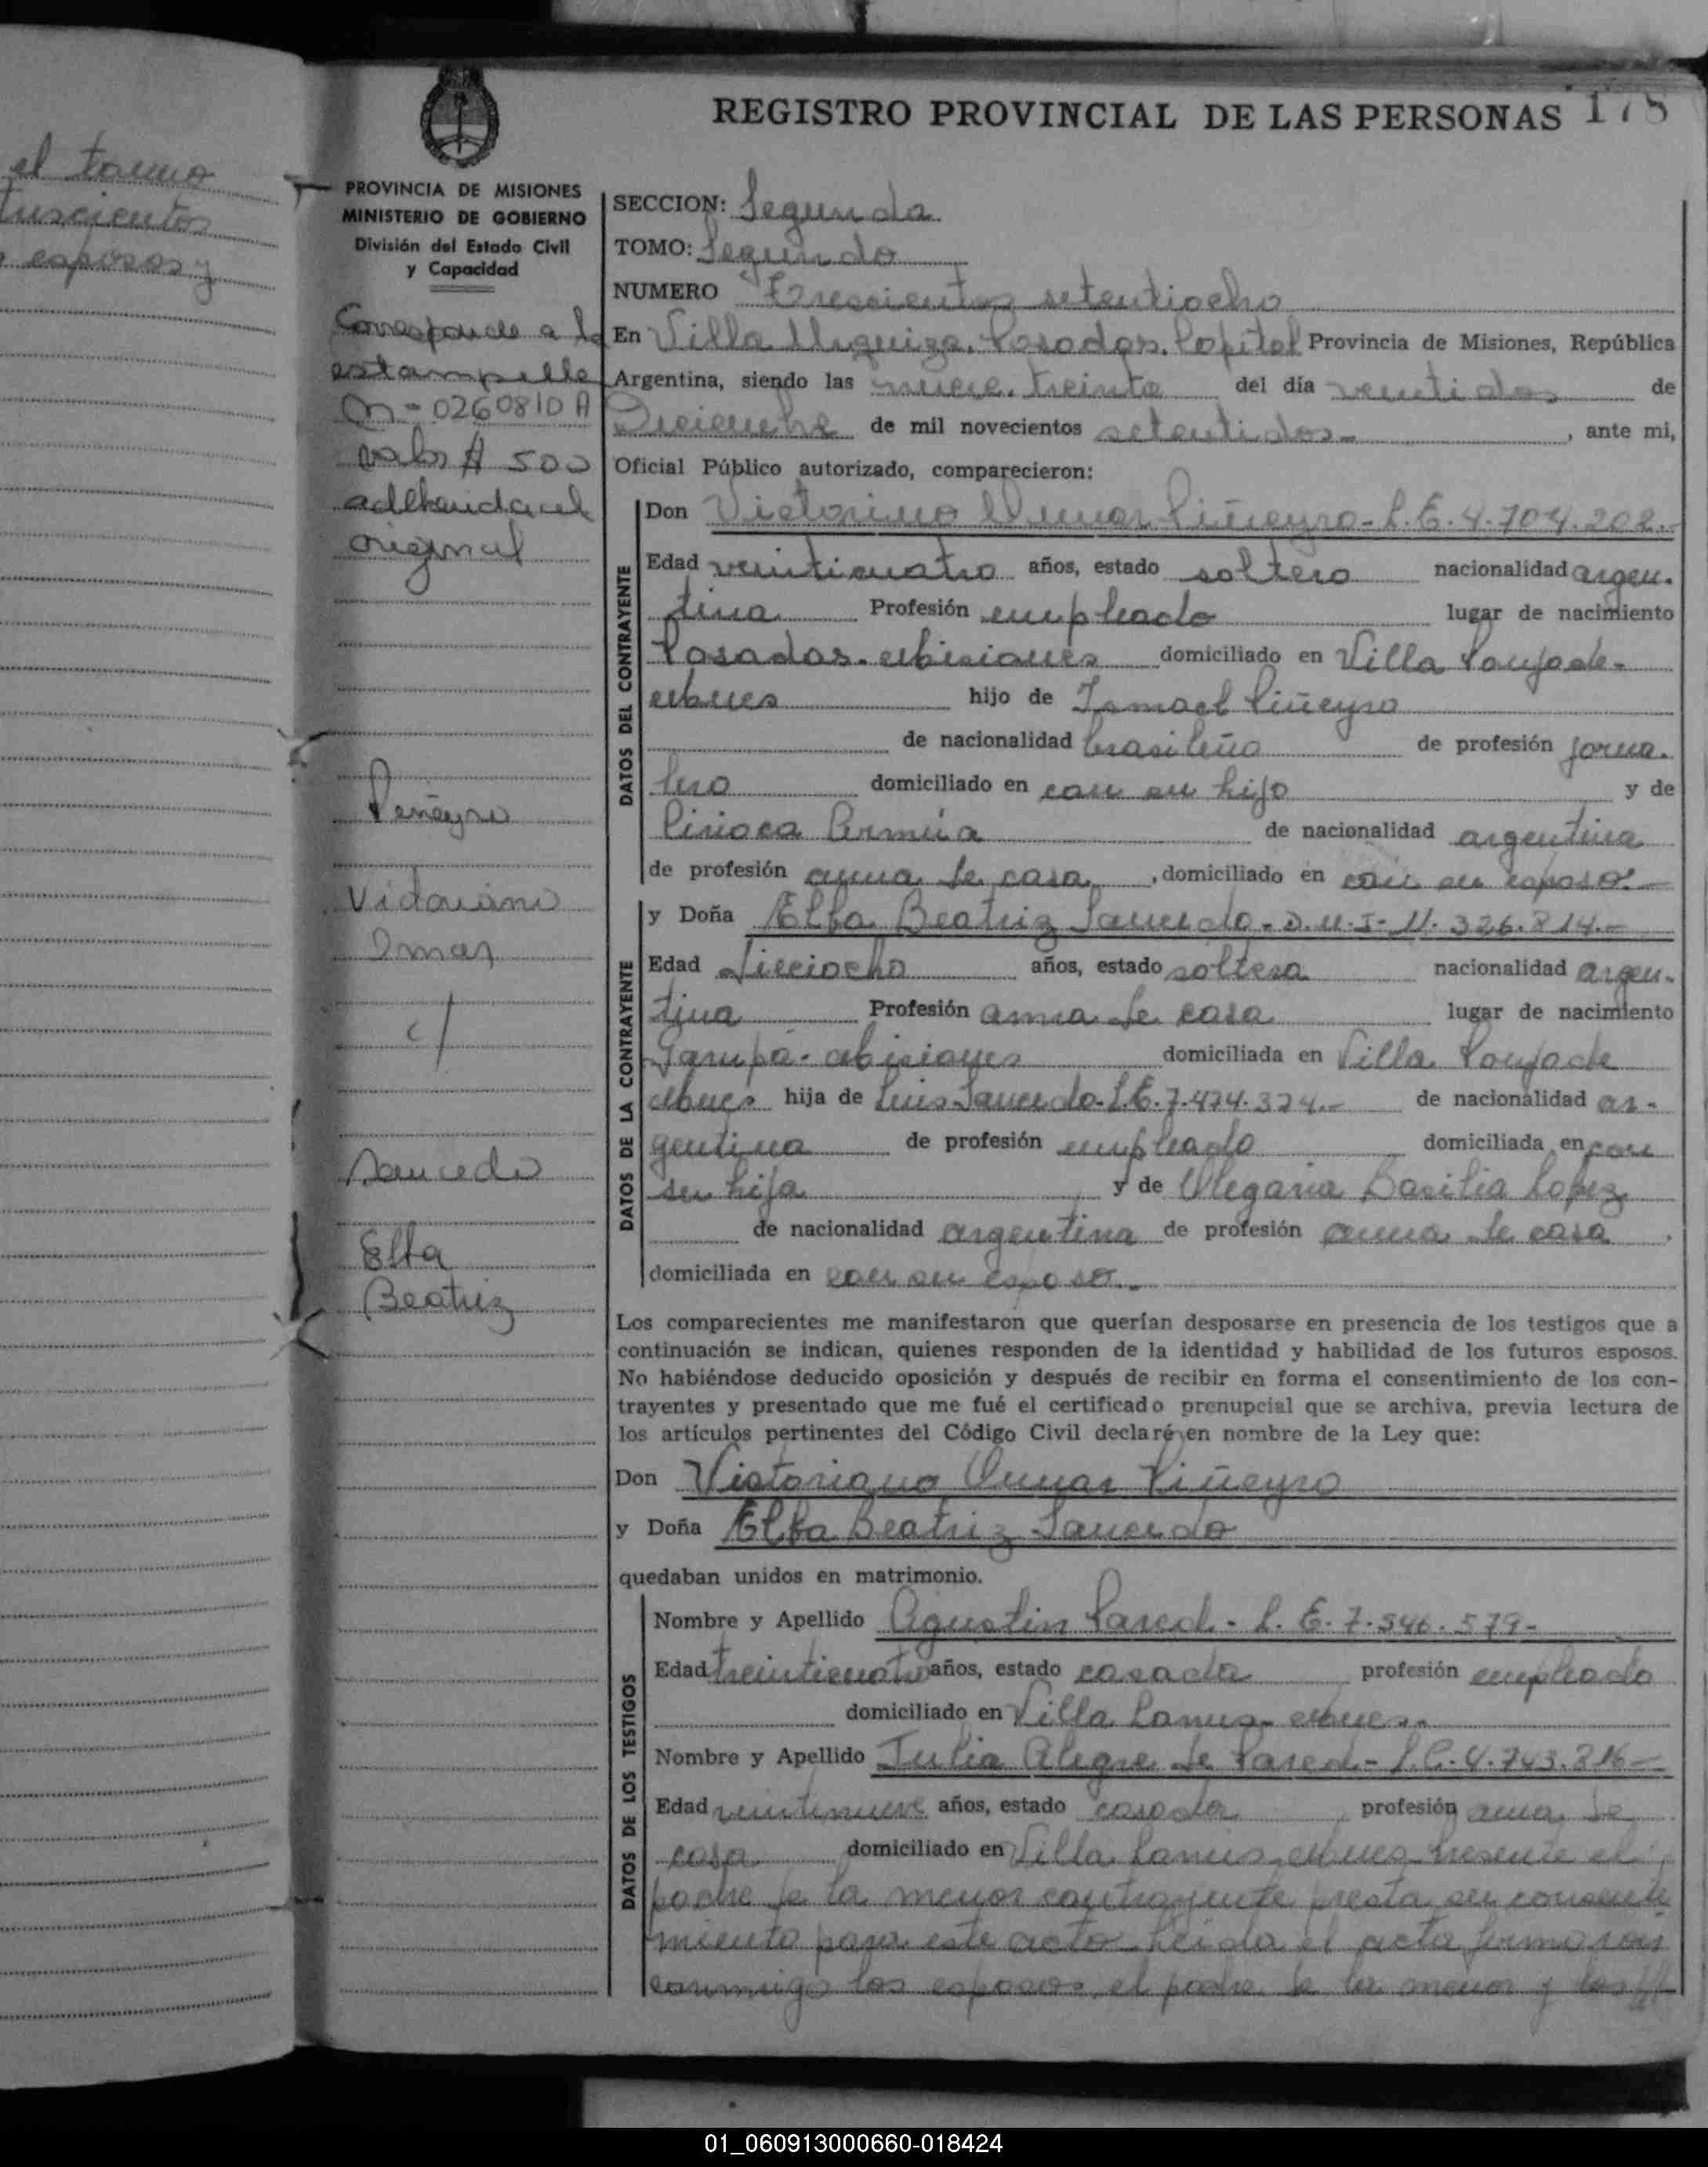 el
esposos y
REGISTRO PROVINCIAL DE LAS PERSONAS 178
PROVINCIA DE MISIONES
MINISTERIO DE GOBIERNO
División del Estado Civil
y Capacidad
Corresponde a la
estampilla
0260810 A
valor $ 500
original
Piñeyro
Omar
c/
Saucedo
Elba
Beatriz
SECCION: Segunda
TOMO: Segundo
NUMERO Trescientos setentiocho
En Villa Urquiza. Posadas. Capital Provincia de Misiones, República
Argentina, siendo las nueve. treinta del día veintidos de
Diciembre de mil novecientos setentidos - , ante mi,
Oficial Público autorizado, comparecieron:
DATOS DEL CONTRAYENTE
Don Victorino Omar Piñeyro - L.E. 4.704.202.-
Edad veinticuatro años, estado soltero nacionalidad argen-
tina Profesión empleado lugar de nacimiento
Posadas. Misiones domiciliado en Villa
Mnes hijo de Ismael Piñeyro
de nacionalidad brasileño de profesión jorna-
lero domiciliado en con su hijo y de
Armúa de nacionalidad argentina
de profesión ama de casa , domiciliado en con su esposo. -
DATOS DE LA CONTRAYENTE
y Doña Elba Beatriz Saucedo. D.U.I. 11.326.814.-
Edad dieciocho años, estado soltera nacionalidad argen-
tina Profesión ama de casa lugar de nacimiento
Garupá. Misiones domiciliada en Villa
Mnes hija de Luis Saucedo. L.E. 7.474.374.- de nacionalidad ar-
gentina de profesión empleado domiciliada en con
su hija y de Olegaria Basilia Lopez
de nacionalidad argentina de profesión ama de casa .
domiciliada en con su esposo. -
Los comparecientes me manifestaron que querían desposarse en presencia de los testigos que a
continuación se indican, quienes responden de la identidad y habilidad de los futuros esposos.
No habiéndose deducido oposición y después de recibir en forma el consentimiento de los con-
trayentes y presentado que me fué el certificado prenupcial que se archiva, previa lectura de
los artículos pertinentes del Código Civil declaré en nombre de la Ley que:
Don Victoriano Omar Piñeyro
y Doña Elba Beatriz Saucedo
quedaban unidos en matrimonio.
DATOS DE LOS TESTIGOS
Nombre y Apellido Agustin Pared. - L. E. 7.546.579-
Edad treinticuatro años, estado casado profesión empleado
domiciliado en Villa Lanus. Mnes. -
Nombre y Apellido Julia Alegre de Pared. - L.C. 4.743.216 -
Edad veintinueve años, estado casada profesión ama de
casa domiciliado en Villa Lanus. Mnes. Presente el
padre de la menor contrayente presta su consenti
miento para este acto. Leida el acta firmaron
conmigo los esposos, el padre de la menor y los
01_060913000660-018424